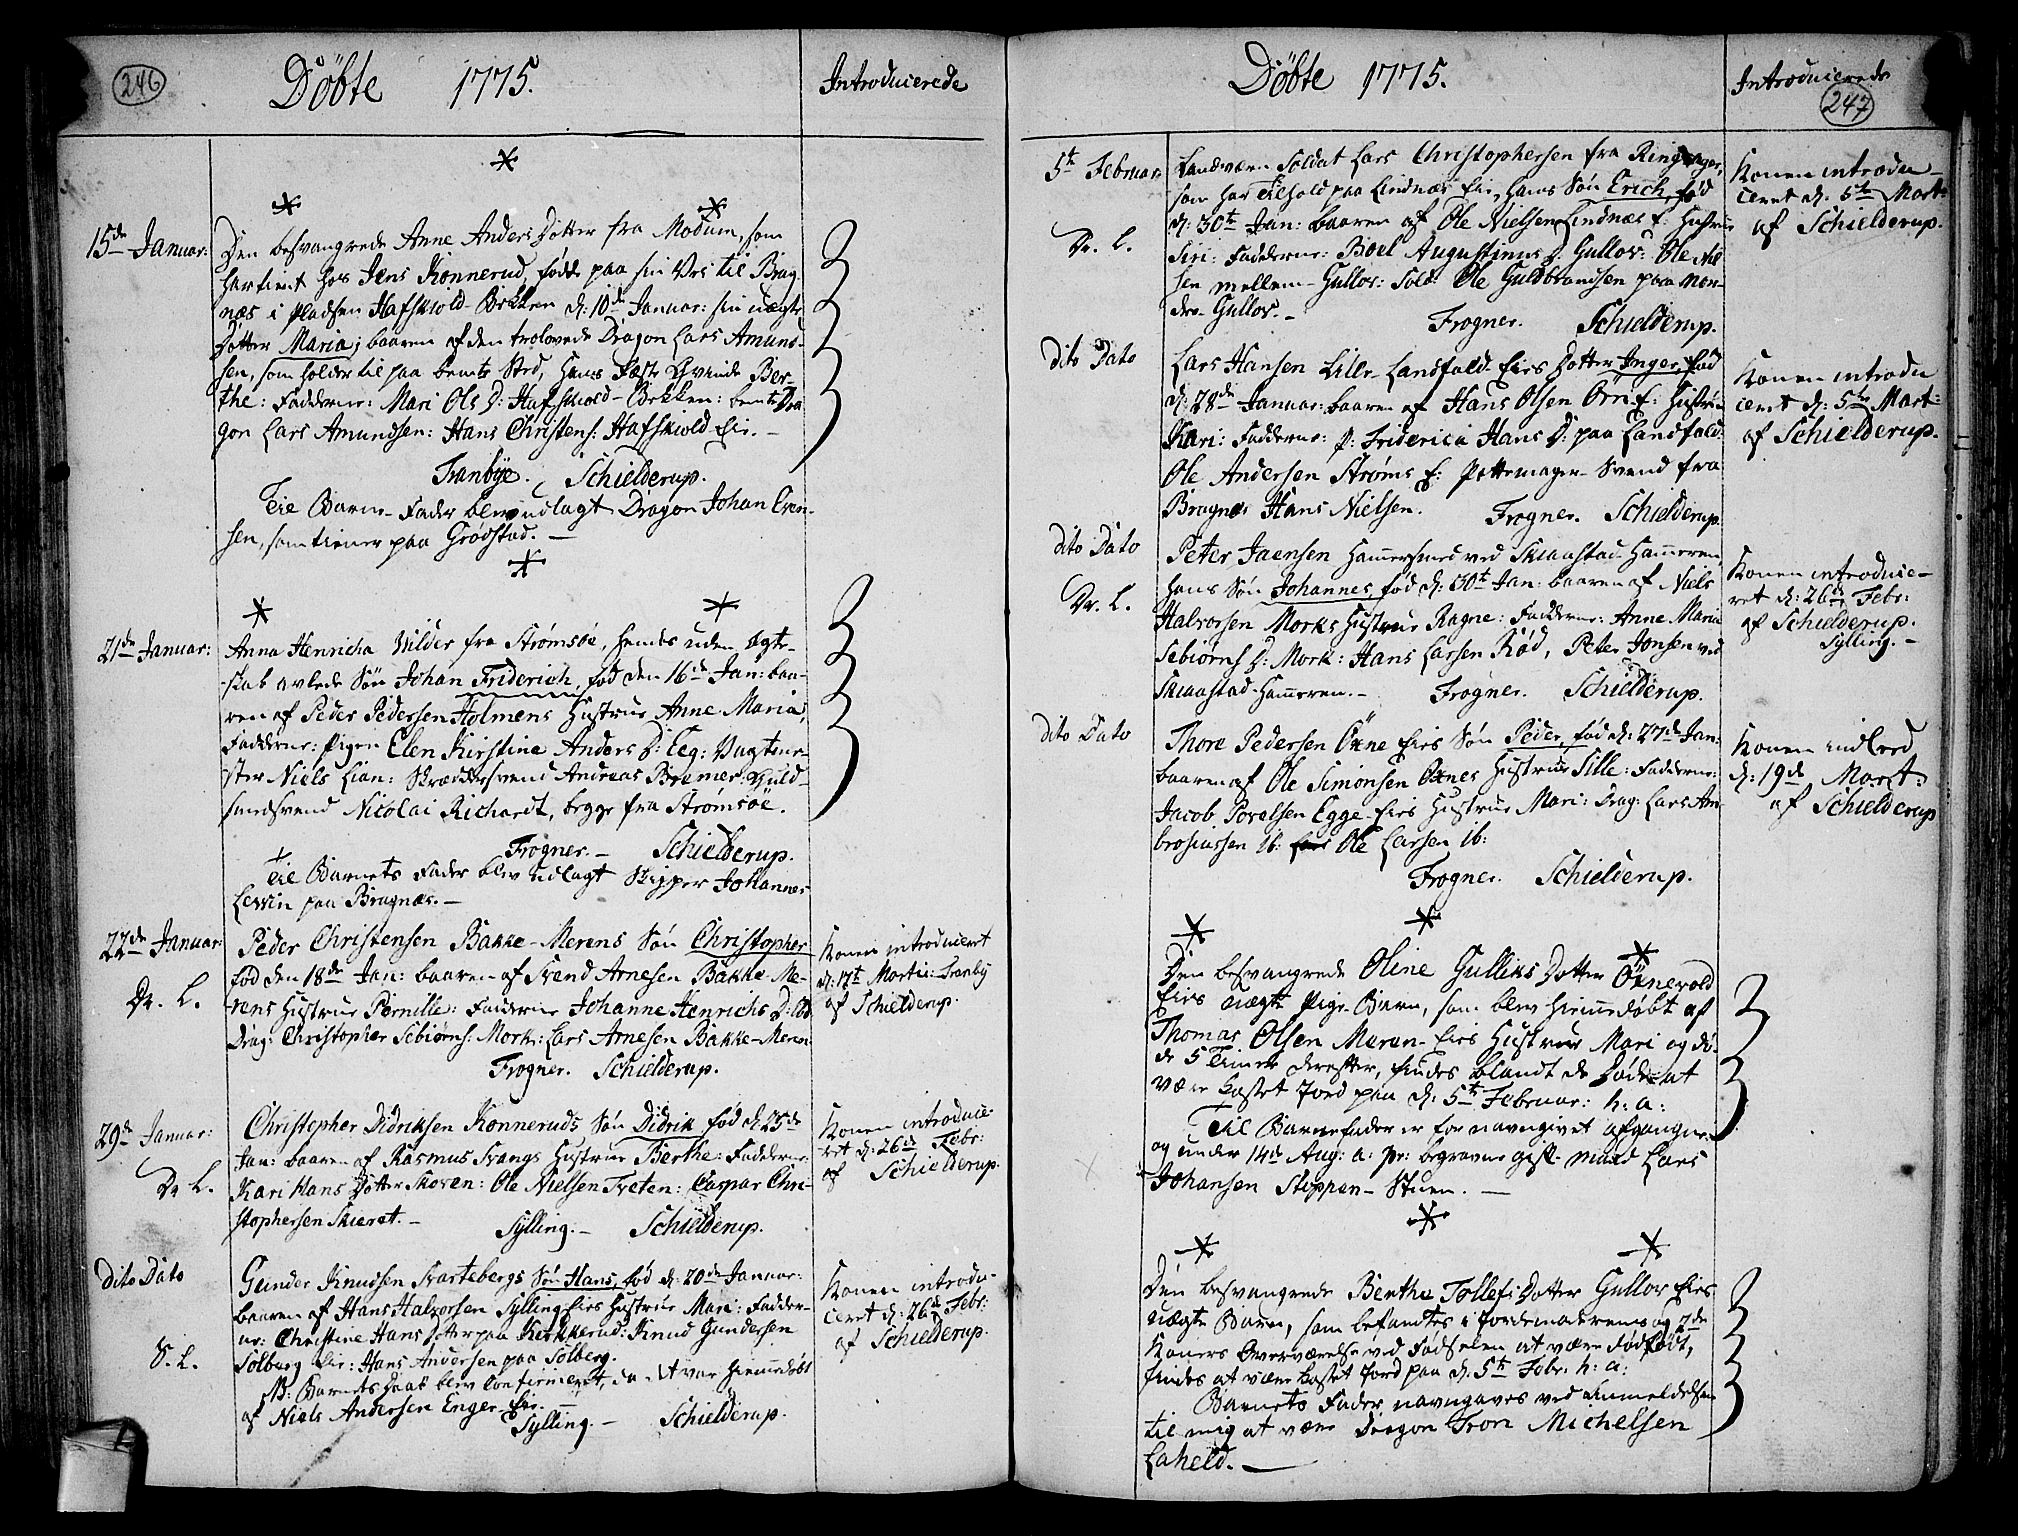 246
Döbte 1775.
Introducerede
15de Januar:
Den besvangrede Anne Anders Dotter fra Modum, som
har tient hos Jens Konnerud, födde paa sin Vei til Brag-
næs i Pladsen Hafskiold-Bekken d: 10de Januar: sin uægte
Dotter Maria; baaren af den trolovede Dragon Lars Amund-
sen, som holder til paa bemte Sted, hans Fæste Qvinde Ber-
the: Fadderne: Mari Ols D: Hafskiold-Bekken: bemte Dra
gon Lars Amundsen: Hans Christens: Hafskiold Eir. -
Tranbye. Schielderup.
Til Barne-Fader blev udlagt Dragon Johan Even-
sen, som tiener paa Grödstad. -
21de Januar:
Anna Henricha Vilder fra Strömsöe, hendes uden Ægte-
skab avlede Sön Johan Friderich, föd den 16de Jan: baa-
ren af Peder Pedersen Holmens Hustrue Anne Maria,
Fadderne: Pigen Elen Kirstine Anders D: Eeg: Vagtme-
ster Niels Lian: Skræddersvend Andreas Bremer: Guld-
smedsvend Nicolai Richardt, begge fra Strömsöe.
Frogner. - Schielderup.
Til Barnets Fader blev udlagt Skipper Johannes
Levin paa Bragnæs. -
22de Januar:
Dr. L.
Peder Christensen Bakke-Merens Sön Christopher
föd den 18de Jan: baaren af Svend Arnesen Bakke-Me-
rens Hustrue Pernille: Fadderne Johanne Henrichs D: ibd
Drag: Christopher Sebiörns: Mork: Lars Arnesen Bakke-Meren:
Frogner. Schielderup.
Konen introduceret
d: 17t Martii: Tranby
af Schielderup.
29de Januar:
Dr L.
Christopher Didriksen Konneruds Sön Didrik föd d: 25de
Jan: baaren af Rasmus Svangs Hustrue Berthe: Fadderne:
Kari Hans Dotter Skoren: Ole Nielsen Treten: Caspar Chri-
stophersen Skieret. -
Sylling. - Schielderup.
Konen introduce-
ret d: 26de Febr:
af Schielderup.
Dito Dato
S. L.
Gunder Knudsen Svartebergs Sön Hans, föd d: 20de Januar:
baaren af Hans Halvorsen Sylling Eirs Hustrue Mari: Fadder-
ne: Christine Hans Dotter paa Kiekkerud: Knud Gundersen
Solberg Eir: Hans Andersen paa Solberg.
NB: Barnets Daab blev Confirmeret, da det var hiemedöbt
af Niels Andersen Enger-Eir.
Sylling. - Schielderup.
Konen introdu-
ceret d: 26de Febr:
af Schielderup.
247
Döbte 1775.
Introducerede
5te Februar:
Dr. L.
Landværn Soldat Lars Christophersen fra Ringeriger,
som har Tilhold paa Lindnæs Eir, hans Sön Erich, föd
d: 30t Jan: baaren af Ole Nielsen Lindnæs E: Hustrue
Siri: Fadderne: Boel Augustinus D: Gullov: Ole Niel
sen mellem-Gullov: Sold: Ole Guldbrandsen paa Nor-
dre-Gullov. -
Frogner. Schielderup.
Konen introdu-
ceret d: 5te Mart:
af Schielderup.
Dito Dato
Lars Hansen Lille-Landfald Eirs Dotter Inger, föd
d: 28de Januar: baaren af Hans Olsen Örn E: Hustrue
Kari: Fadderne: P: Friderica Hans D: paa Landfald:
Ole Andersen Ströms E: Pottemager-Svend fra
Bragnes Hans Nielsen.
Frogner. Schielderup.
Konen introdu
ceret d: 5te Mart:
af Schielderup.
Dito Dato
Dr. L.
Peter Jaensen Hammersmed ved Skiaastad-Hammeren,
hans Sön Johannes, föd d: 30t Jan: baaren af Niels
Halvorsen Morks Hustrue Ragne: Fadderne: Anne Maria
Sebiörns D: Mork: Hans Larsen Röd, Peter Jonsen ved
Skiaastad-Hammeren. -
Frogner. Schielderup.
Konen introduce-
ret d: 26de Febr:
af Schielderup.
Sylling. -
Dito Dato
Thore Pedersen Öxne Eirs Sön Peder, föd d: 27de Jan:
baaren af Ole Simonsen Öxnes Hustrue Sille: Fadderne:
Jacob Povelsen Egge-Eirs Hustrue Mari: Drag: Lars Am-
brosiussen ib: Ole Larsen ib:
Frogner. Schielderup.
Konen indled
d: 19de Mart:
af Schielderup
Den besvangrede Oline Gulliks Dotter Öxnevold
Eirs uægte Pige-Barn, som blev hiemedöbt af
Thomas Olsen Meren-Eirs Hustrue Mari og dö-
de 5 Timer derefter, findes blandt de Döde at
være kastet Jord paa d: 5te Februar: h: a:
Til Barnefader er for navngivet afgangne
og under 14de Aug: a: pr: begravne gift-mand Lars
Johansen Steppen-Stuen. -
Den besvangrede Berthe Tollefs Dotter Gullov Eirs
uægte Barn, som befandtes i Jordemoderens og 2de
Koners Overværelse ved Födselen at være dödfödt,
findes at være kastet Jord paa d: 5te Febr: h: a:
Barnets Fader navngaves ved Anmeldelsen
til mig at være Dragon Tron Michelsen
Laheld. -